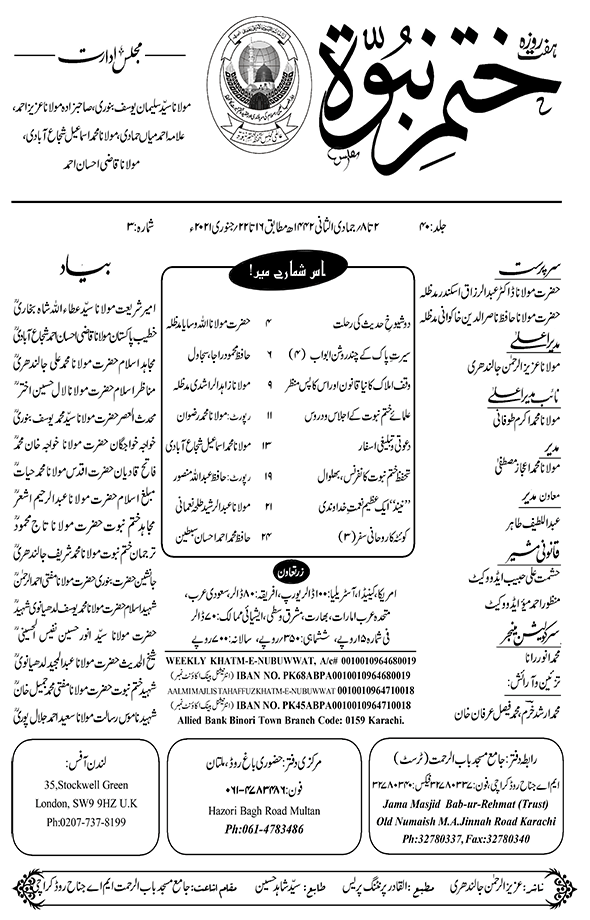 ہفت روزہ
ختم نبوۃ
مجلس ادارت
مولانا سید سلیمان یوسف بنوری، صاحبزادہ مولانا عزیز احمد،
علامہ احمد میاں حمادی، مولانا محمد اسماعیل شجاع آبادی،
مولانا قاضی احسان احمد
جلد: ۴۰
۲ تا ۸/ جمادی الثانی ۱۴۴۲ھ مطابق ۱۶ تا ۲۲/ جنوری ۲۰۲۱ء
شمارہ: ۳
سرپرست
حضرت مولانا ڈاکٹر عبدالرزاق اسکندر مدظلہ
حضرت مولانا حافظ ناصرالدین خاکوانی مدظلہ
مدیر اعلیٰ
مولانا عزیز الرحمٰن جالندھری
نائب مدیر اعلیٰ
مولانا محمد اکرم طوفانی
مدیر
مولانا محمد اعجاز مصطفیٰ
معاون مدیر
عبداللطیف طاہر
قانونی مشیر
حشمت علی حبیب ایڈووکیٹ
منظور احمد میؤ ایڈووکیٹ
سرکولیشن منیجر
محمد انور رانا
تزئین و آرائش:
محمد ارشد خرم، محمد فیصل عرفان خان
اس شمارے میں!
دو شیوخِ حدیث کی رحلت ۴ حضرت مولانا اللہ وسایا مدظلہ
سیرت پاک کے چند روشن ابواب (۴) ۶ حافظ محمود راجا، سجاول
وقف املاک کا نیا قانون اور اس کا پس منظر ۹ مولانا زاہد الراشدی مدظلہ
علمائے ختم نبوت کے اجلاس و دروس ۱۱ رپورٹ: مولانا محمد رضوان
دعوتی و تبلیغی اسفار ۱۳ مولانا محمد اسماعیل شجاع آبادی
تحفظ ختم نبوت کانفرنس، بھلوال ۱۹ رپورٹ: حافظ عبداللہ منصور
”نیند“ ایک عظیم نعمت خداوندی ۲۱ مولانا عبدالرشید طلحہ نعمانی
کوئٹہ کا روحانی سفر (۳) ۲۴ حافظ محمد احمد احسان سبطین
زرتعاون
امریکا، کینیڈا، آسٹریلیا: ۱۰۰ ڈالر یورپ، افریقہ: ۸۰ ڈالر، سعودی عرب،
متحدہ عرب امارات، بھارت، مشرق وسطیٰ، ایشیائی ممالک: ۷۰ ڈالر
فی شمارہ ۱۵ روپے، ششماہی: ۳۵۰ روپے، سالانہ: ۷۰۰ روپے
WEEKLY KHATM-E-NUBUWWAT, A/c# 0010010964680019
IBAN NO. PK68ABPA0010010964680019 (انٹرنیشنل بینک اکاؤنٹ نمبر)
AALMIMAJLIS TAHAFFUZ KHATM-E-NUBUWWAT 0010010964710018
IBAN NO. PK45ABPA0010010964710018 (انٹرنیشنل بینک اکاؤنٹ نمبر)
Allied Bank Binori Town Branch Code: 0159 Karachi.
بیاد
امیر شریعت مولانا سید عطاء اللہ شاہ بخاریؒ
خطیب پاکستان مولانا قاضی احسان احمد شجاع آبادیؒ
مجاہد اسلام حضرت مولانا محمد علی جالندھریؒ
مناظر اسلام حضرت مولانا لال حسین اخترؒ
محدث العصر حضرت مولانا سید محمد یوسف بنوریؒ
خواجہ خواجگان حضرت مولانا خواجہ خان محمدؒ
فاتح قادیان حضرت اقدس مولانا محمد حیاتؒ
مبلغ اسلام حضرت مولانا عبدالرحیم اشعرؒ
مجاہد ختم نبوت حضرت مولانا تاج محمودؒ
ترجمان ختم نبوت حضرت مولانا محمد شریف جالندھریؒ
جانشین حضرت بنوری حضرت مولانا مفتی احمد الرحمٰنؒ
شہید اسلام حضرت مولانا محمد یوسف لدھیانوی شہیدؒ
حضرت مولانا سید انور حسین نفیس الحسینیؒ
شیخ الحدیث حضرت مولانا عبدالمجید لدھیانویؒ
شہید ختم نبوت حضرت مولانا مفتی محمد جمیل خانؒ
شہید ناموس رسالت مولانا سعید احمد جلال پوریؒ
رابطہ دفتر: جامع مسجد باب الرحمت (ٹرسٹ)
ایم اے جناح روڈ کراچی، فون: ۳۲۷۸۰۳۳۷ فیکس: ۳۲۷۸۰۳۴۰
Jama Masjid Bab-ur-Rehmat (Trust)
Old Numaish M.A.Jinnah Road Karachi
Ph:32780337, Fax:32780340
مرکزی دفتر: حضوری باغ روڈ، ملتان
فون: ۰۶۱-۴۷۸۳۴۸۶
Hazori Bagh Road Multan
Ph:061-4783486
لندن آفس:
35,Stockwell Green
London, SW9 9HZ U.K
Ph:0207-737-8199
ناشر: عزیز الرحمٰن جالندھری مطبع: القادر پرنٹنگ پریس طابع: سید شاہد حسین مقام اشاعت: جامع مسجد باب الرحمت ایم اے جناح روڈ کراچی